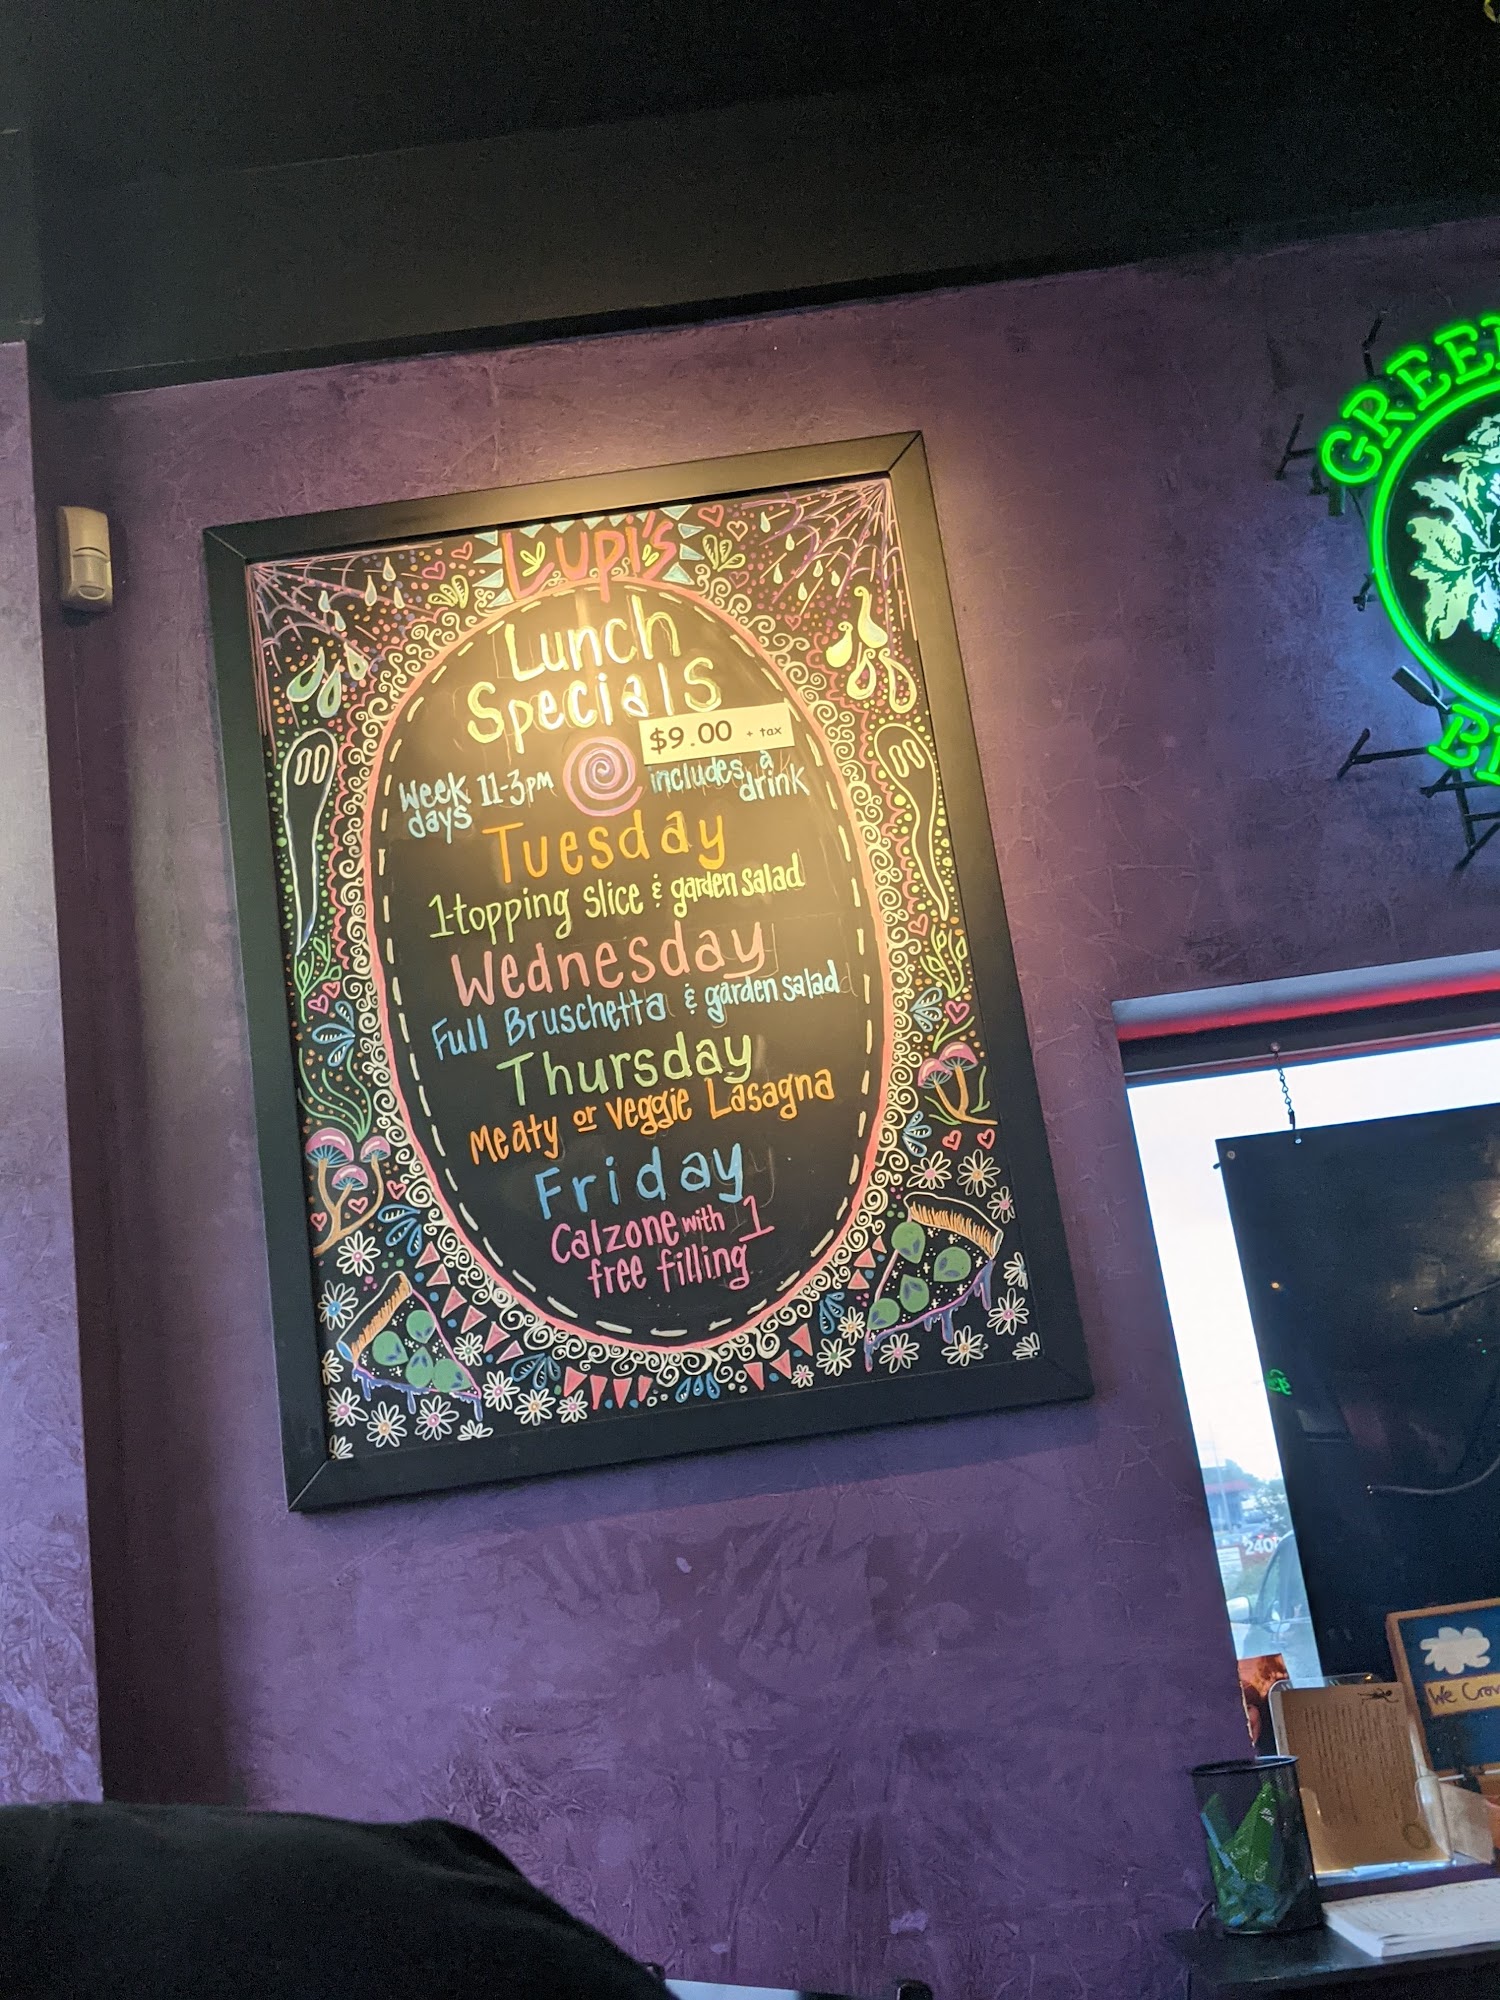 Lupi's
Lunch
Specials
$9.00 + tax
Week days 11-3pm includes a drink
Tuesday
1-topping slice & garden salad
Wednesday
Full Bruschetta & garden salad
Thursday
Meaty or Veggie Lasagna
Friday
Calzone with 1
free filling
GREE
We Crav
240